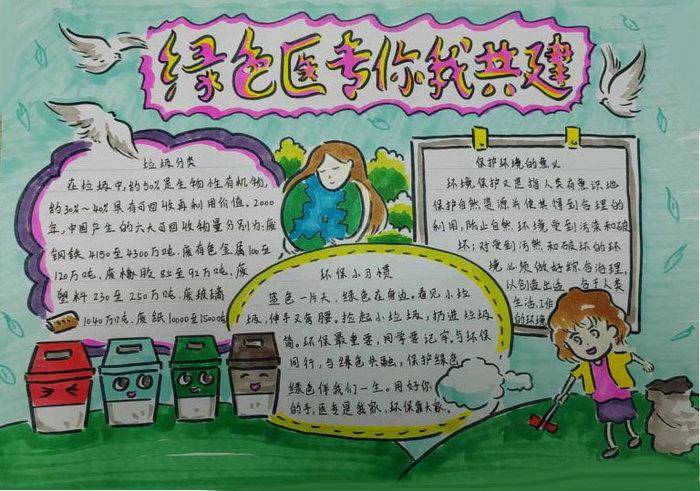 绿色医专你我共建
垃圾分类
在垃圾中,约50%是生物性有机物,
约30%~40%具有可回收再利用价值,2000
年,中国产生的六大可回收物量分别为:废
钢铁4150至4300万吨.废有色金属100至
120万吨、废橡胶85至92万吨、废
塑料230至250万吨、废玻璃
1040万吨、废纸10000至15000吨
环保小习惯
蓝色一片天,绿色在身边。看见小垃
圾,伸手又弯腰。捡起小垃圾,扔进垃圾
筒。环保最重要,同学要记牢,与环保
同行,与绿色共融,保护绿色
绿色伴我们一生。用好你
的手,医专是我家,环保靠大家。
保护环境的意义
环境保护又是指人类有意识地
保护自然资源并使其得到合理的
利用,防止自然环境受到污染和破
坏;对受到污染和破坏的环
境必须做好综合治理,
以创造出适合于人类
生活、工作
的环境